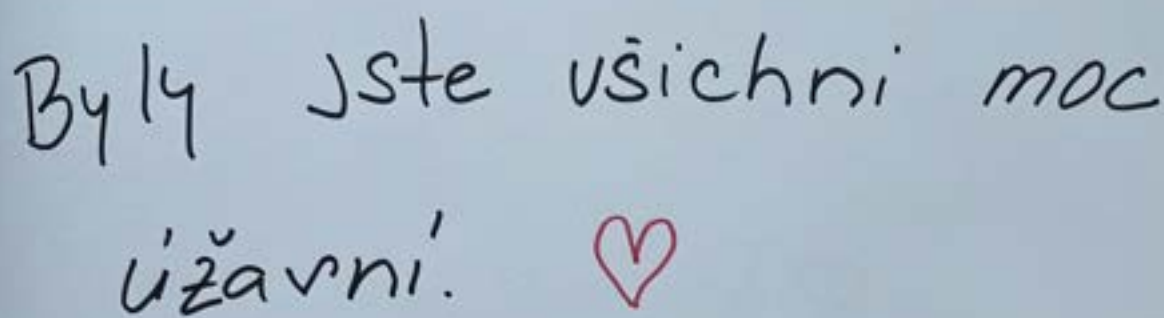 Byly jste všichni moc
úžavní. ♡